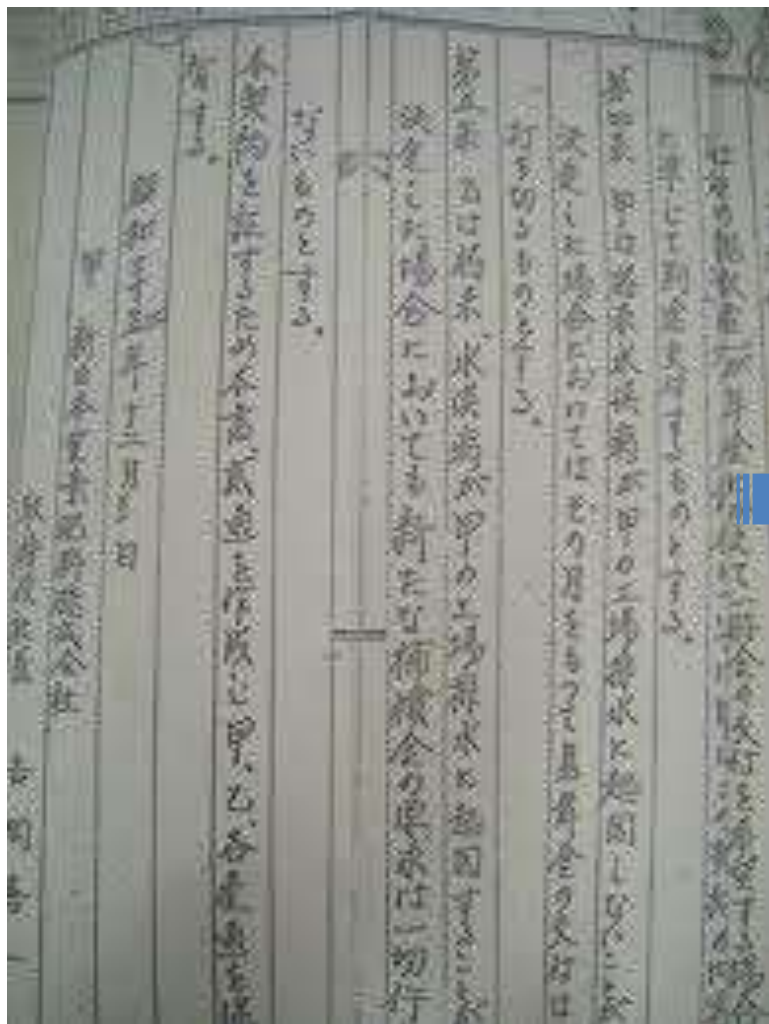 に準じて別途交付するものとする。
第四条 甲は将来水俣病が甲の工場排水に起因しないことが
決定した場合においてはその月をもって見舞金の交付は
打ち切るものとする。
第五条 乙は将来、水俣病が甲の工場排水に起因することが
決定した場合においても新たな補償金の要求は一切行
なわないものとする。
本契約を証するため本書弐通を作成し甲、乙、各壱通を保
有する。
昭和三十四年十二月 日
甲 新日本窒素肥料株式会社
吉岡喜一